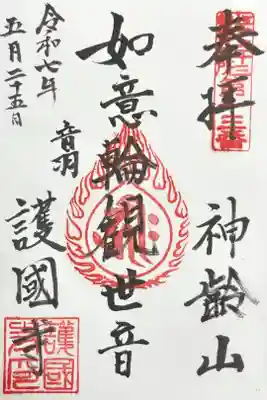 奉拝
神齢山
如意輪観世音
音羽
護國寺
令和七年
五月二十五日
護國寺